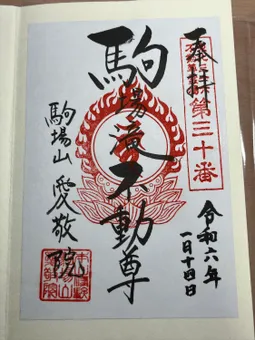 奉拝
第三十番
令和六年
一月十四日
駒場滝不動尊
駒場山 愛敬院